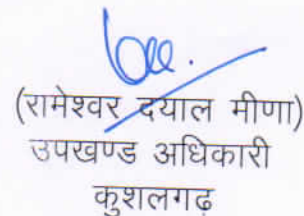 (रामेश्वर दयाल मीणा)
उपखण्ड अधिकारी
कुशलगढ